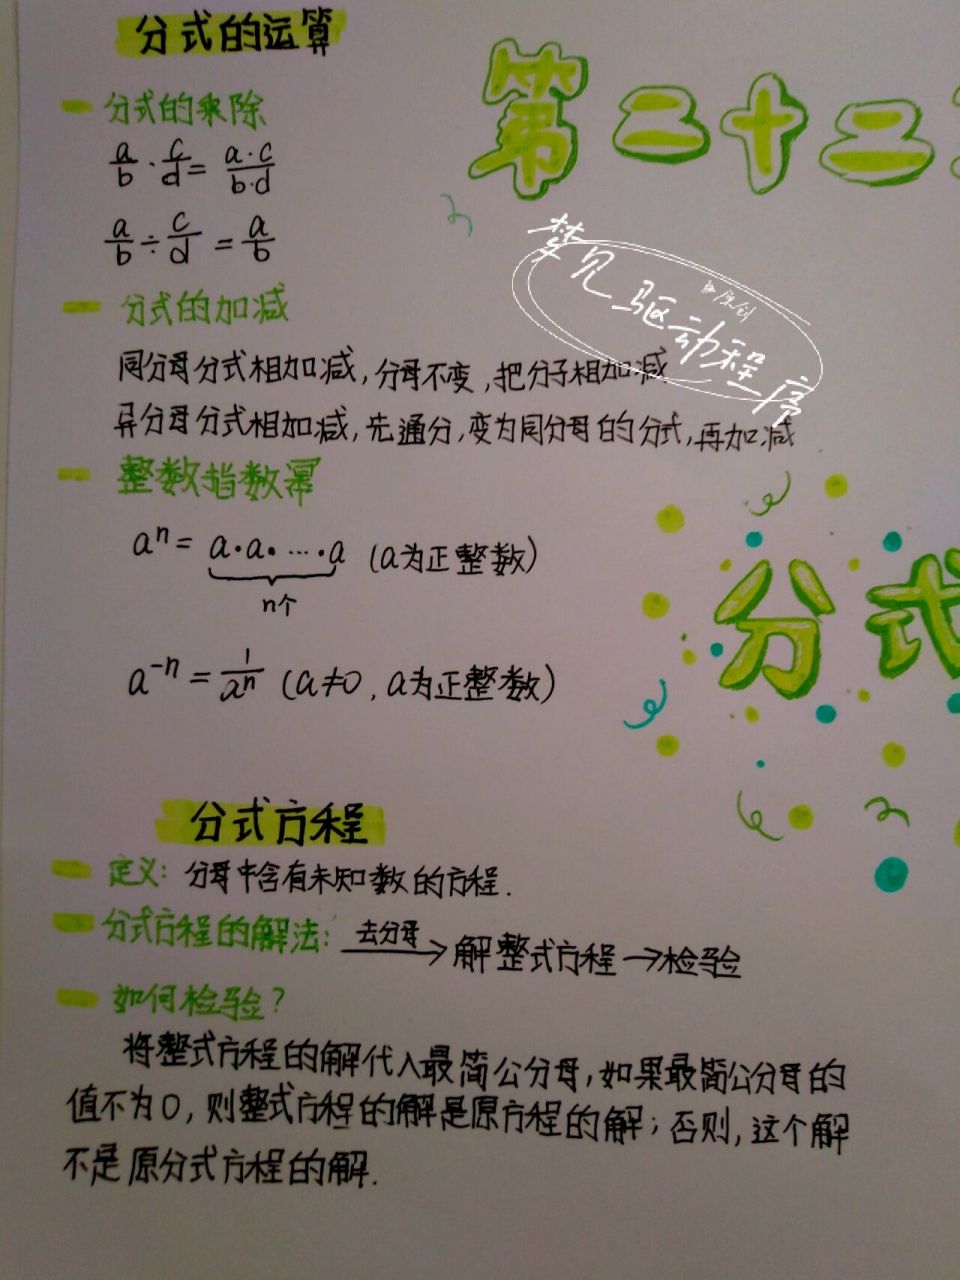 分式的运算
第二十二
分式的乘除
a/b · c/d = a·c/b·d
a/b ÷ c/d = a/b
梦见驱动程序
原创
分式的加减
同分母分式相加减,分母不变,把分子相加减
异分母分式相加减,先通分,变为同分母的分式,再加减
整数指数幂
aⁿ = a·a·…·a (a为正整数)
n个
a⁻ⁿ = 1/aⁿ (a≠0, a为正整数)
分式
分式方程
定义: 分母中含有未知数的方程.
分式方程的解法: 去分母→解整式方程→检验
如何检验?
将整式方程的解代入最简公分母,如果最简公分母的
值不为0,则整式方程的解是原方程的解;否则,这个解
不是原分式方程的解.